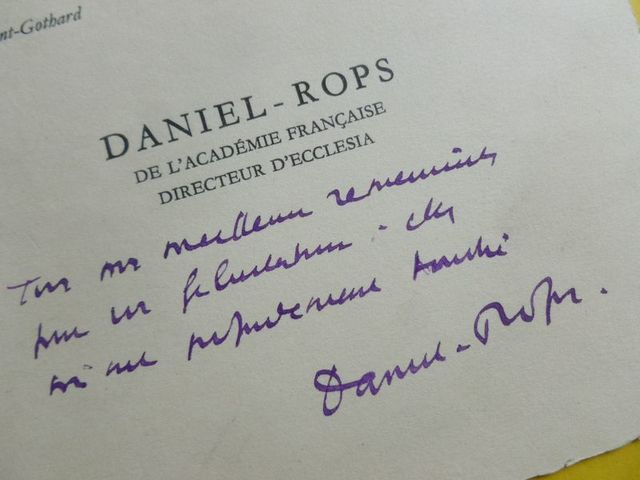 nt-Gothard
DANIEL-ROPS
DE L'ACADÉMIE FRANÇAISE
DIRECTEUR D'ECCLESIA
Tous mes meilleurs remerciements
pour vos félicitations : elles
m'ont profondément touché
Daniel-Rops.